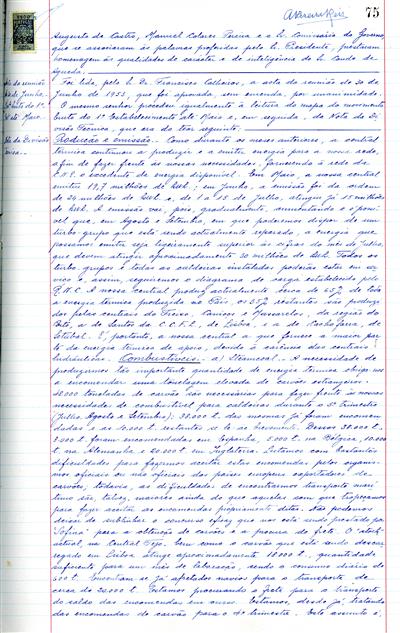 75
Augusto de Castro, Manuel Colares Pereira e o Sr. Comissário do Governo,
que se associaram às palavras proferidas pelo Sr. Presidente, prestaram
homenagem às qualidades de carácter e de inteligência do Sr. Conde de
Águeda.
Foi lida, pelo Sr. Dr. Francisco, a acta da reunião de 30 de
Junho de 1953, que foi aprovada, sem emenda, por unanimidade.
O mesmo senhor procedeu igualmente à leitura do mapa do movimento
bruto do 1º Estabelecimento até Maio e, em segundo, da Nota da Di-
visão Técnica, que era do teor seguinte:
Produção e emissão. Como durante os meses anteriores, a central
térmica continuou a produzir e a emitir energia para a nossa rede,
a fim de fazer frente às nossas necessidades, fornecendo à rede da
C.N.E. o excedente de energia disponível. Em Maio, a nossa central
emitiu 19,7 milhões de kwh; em Junho, a emissão foi da ordem
de 24 milhões de kwh e, de 1 a 18 de Julho, atingiu já 15 milhões
de kwh. A emissão vai, pois, gradualmente, aumentando e é possí-
vel que, em Agosto e Setembro, em que poderemos dispor de um
turbo grupo que está sendo actualmente reparado, a energia que
possamos emitir seja ligeiramente superior às cifras do mês de Julho,
que devem atingir aproximadamente 30 milhões de kwh. Todos os
turbo-grupos e todas as caldeiras instaladas poderão estar em ser-
viço e, assim, seguiremos o diagrama de carga estabelecido pelo
R.N.C. A nossa central produz actualmente cerca de 65% de toda
a energia térmica produzida no País, os 35% restantes são produzi-
dos pelas centrais do Freixo, Caniços e Massarelos, da região do
Porto, a de Santos da C.C.F.L. de Lisboa, e a da Cachofarra, de
Setúbal. É, portanto, a nossa central a que fornece a maior par-
te da energia térmica de apoio, devido à carência das centrais
hidráulicas. Combustíveis - a) Steamcoal. A necessidade de
produzirmos tão importante quantidade de energia térmica obriga-nos
a encomendar uma tonelagem elevada de carvões estrangeiros.
48.000 toneladas de carvão são necessárias para fazer frente às nossas
necessidades de combustível para caldeiras durante o 3º trimestre
(Julho, Agosto e Setembro); 38.000 t. das mesmas já foram encomen-
dadas e as 10.000 t. restantes sê-lo-ão brevemente. Dessas 38.000 t.
3.000 t. foram encomendadas em Espanha, 5.000 t. na Bélgica, 10.000
t. na Alemanha e 20.000 t. em Inglaterra. Lutamos com bastantes
dificuldades para fazermos aceitar estas encomendas pelos organis-
mos oficiais ou não oficiais dos países europeus exportadores de
carvões; todavia, as dificuldades de encontrarmos transporte marí-
timo são, talvez, maiores ainda do que aquelas com que tropeçamos
para fazer aceitar as encomendas propriamente ditas. Não podemos
deixar de sublinhar o concurso eficaz que nos está sendo prestado por
"Sofina" para a obtenção de carvões e a procura de frete. O stock
actual, na Central Tejo, bem como o carvão que está sendo descar-
regado em Lisboa atinge aproximadamente 18.000 t., quantidade
suficiente para um mês de laboração, sendo o consumo diário de
600 t. Encontram-se já afretados navios para o transporte de
cerca de 25.000 t. Estamos procurando o frete para o transporte
do saldo das encomendas em curso. Estamos, desde já, tratando
das encomendas de carvão para o 4º trimestre. Este assunto é,